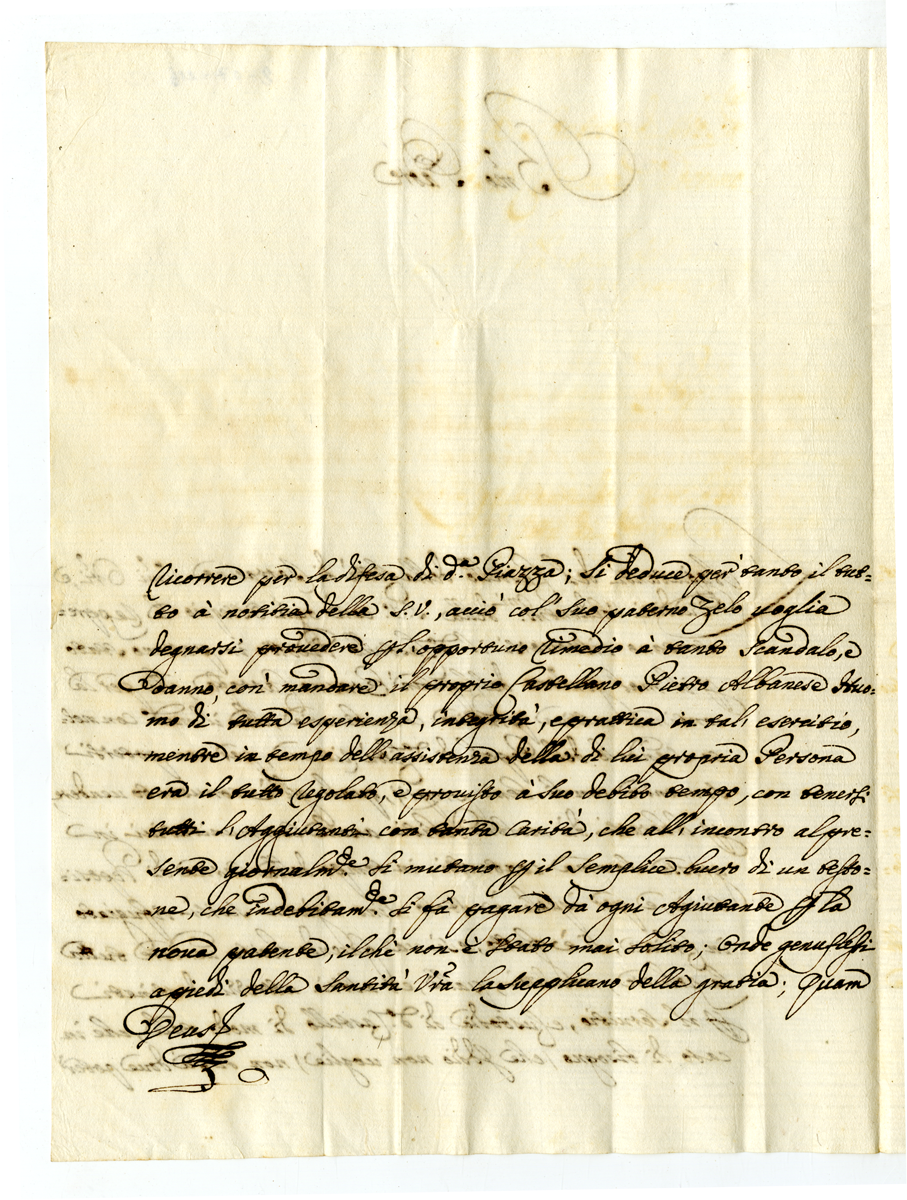 ricorrere per la difesa di d.ª Piazza; Si deduce per tanto il tut-
to à notitia della S. V., acciò col' Suo paterno Zelo voglia
degnarsi provedere ꝑ l'opportuno rimedio à tanto scandalo, e
danno, con' mandare il proprio Castellano Pietro Albanese Huo-
mo di tutta esperienza, integrità, e prattica in tal' esercitio,
mentre in tempo dell'assistenza della di lui propria Persona
era il tutto regolato, e provisto à suo debito tempo, con tenersi
tutti l'Aggiutanti con tanta Carità, che all'incontro al pre-
sente giornalm.te si mutano ꝑ il semplice lucro di un testo-
ne, che indebitam.te si fà pagare dà ogni Agiutante ꝑ la
nova patente, il chè non è stato mai solito; Onde genuflessi
a piedi della Santità Vrã la supplicano della gratia; Quam
Deus